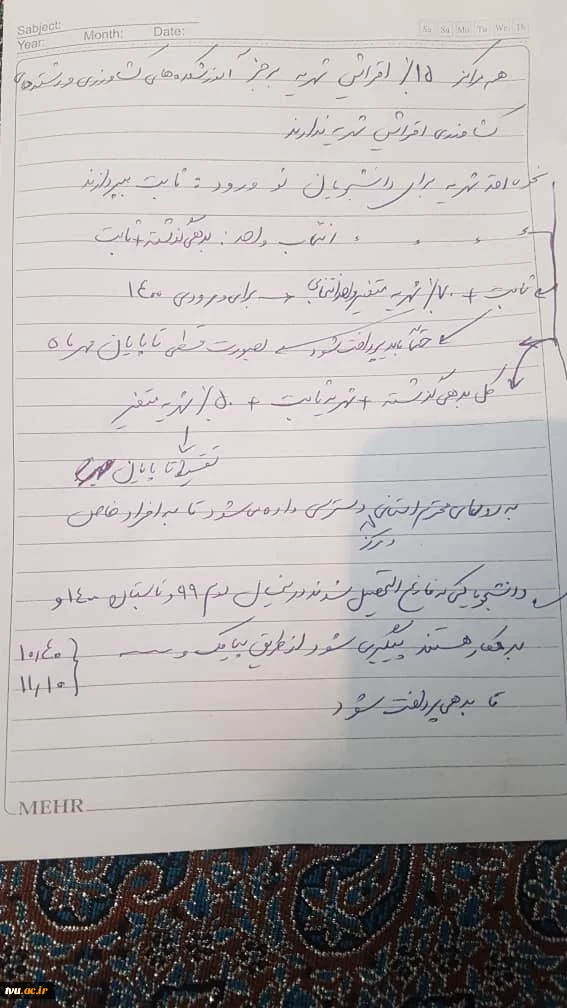 Sabject:
Year: Month: Date:
Sa Su Mo Tu We Th
هر مرکز ۱۵٪ افزایش شهریه بجز آموزشکده‌های کشاورزی و رشته‌های
کشاورزی افزایش شهریه ندارند
نحوه اخذ شهریه برای دانشجویان نو ورود : ثابت بپردازند
انتخاب واحد : بدهی گذشته + ثابت
ثابت + ۷۰٪ شهریه متغیر واحد انتخابی برای ورودی ۱۴۰۰
حتماً باید پرداخت شود بصورت قسطی تا پایان مهر ماه
کل بدهی گذشته + شهریه ثابت + ۵۰٪ شهریه متغیر
تقسیط تا پایان
به روسای محترم استانی و مرکز دسترسی داده می‌شود تا به افراد خاص
دانشجویانی که فارغ التحصیل شدند در نیمسال دوم ۹۹ و تابستان ۱۴۰۰ و
بدهکار هستند پیگیری شود از طریق پیامک و
۱۰,۴۰
۱۱,۱۰
تا بدهی پرداخت شود
MEHR
tvu.ac.ir